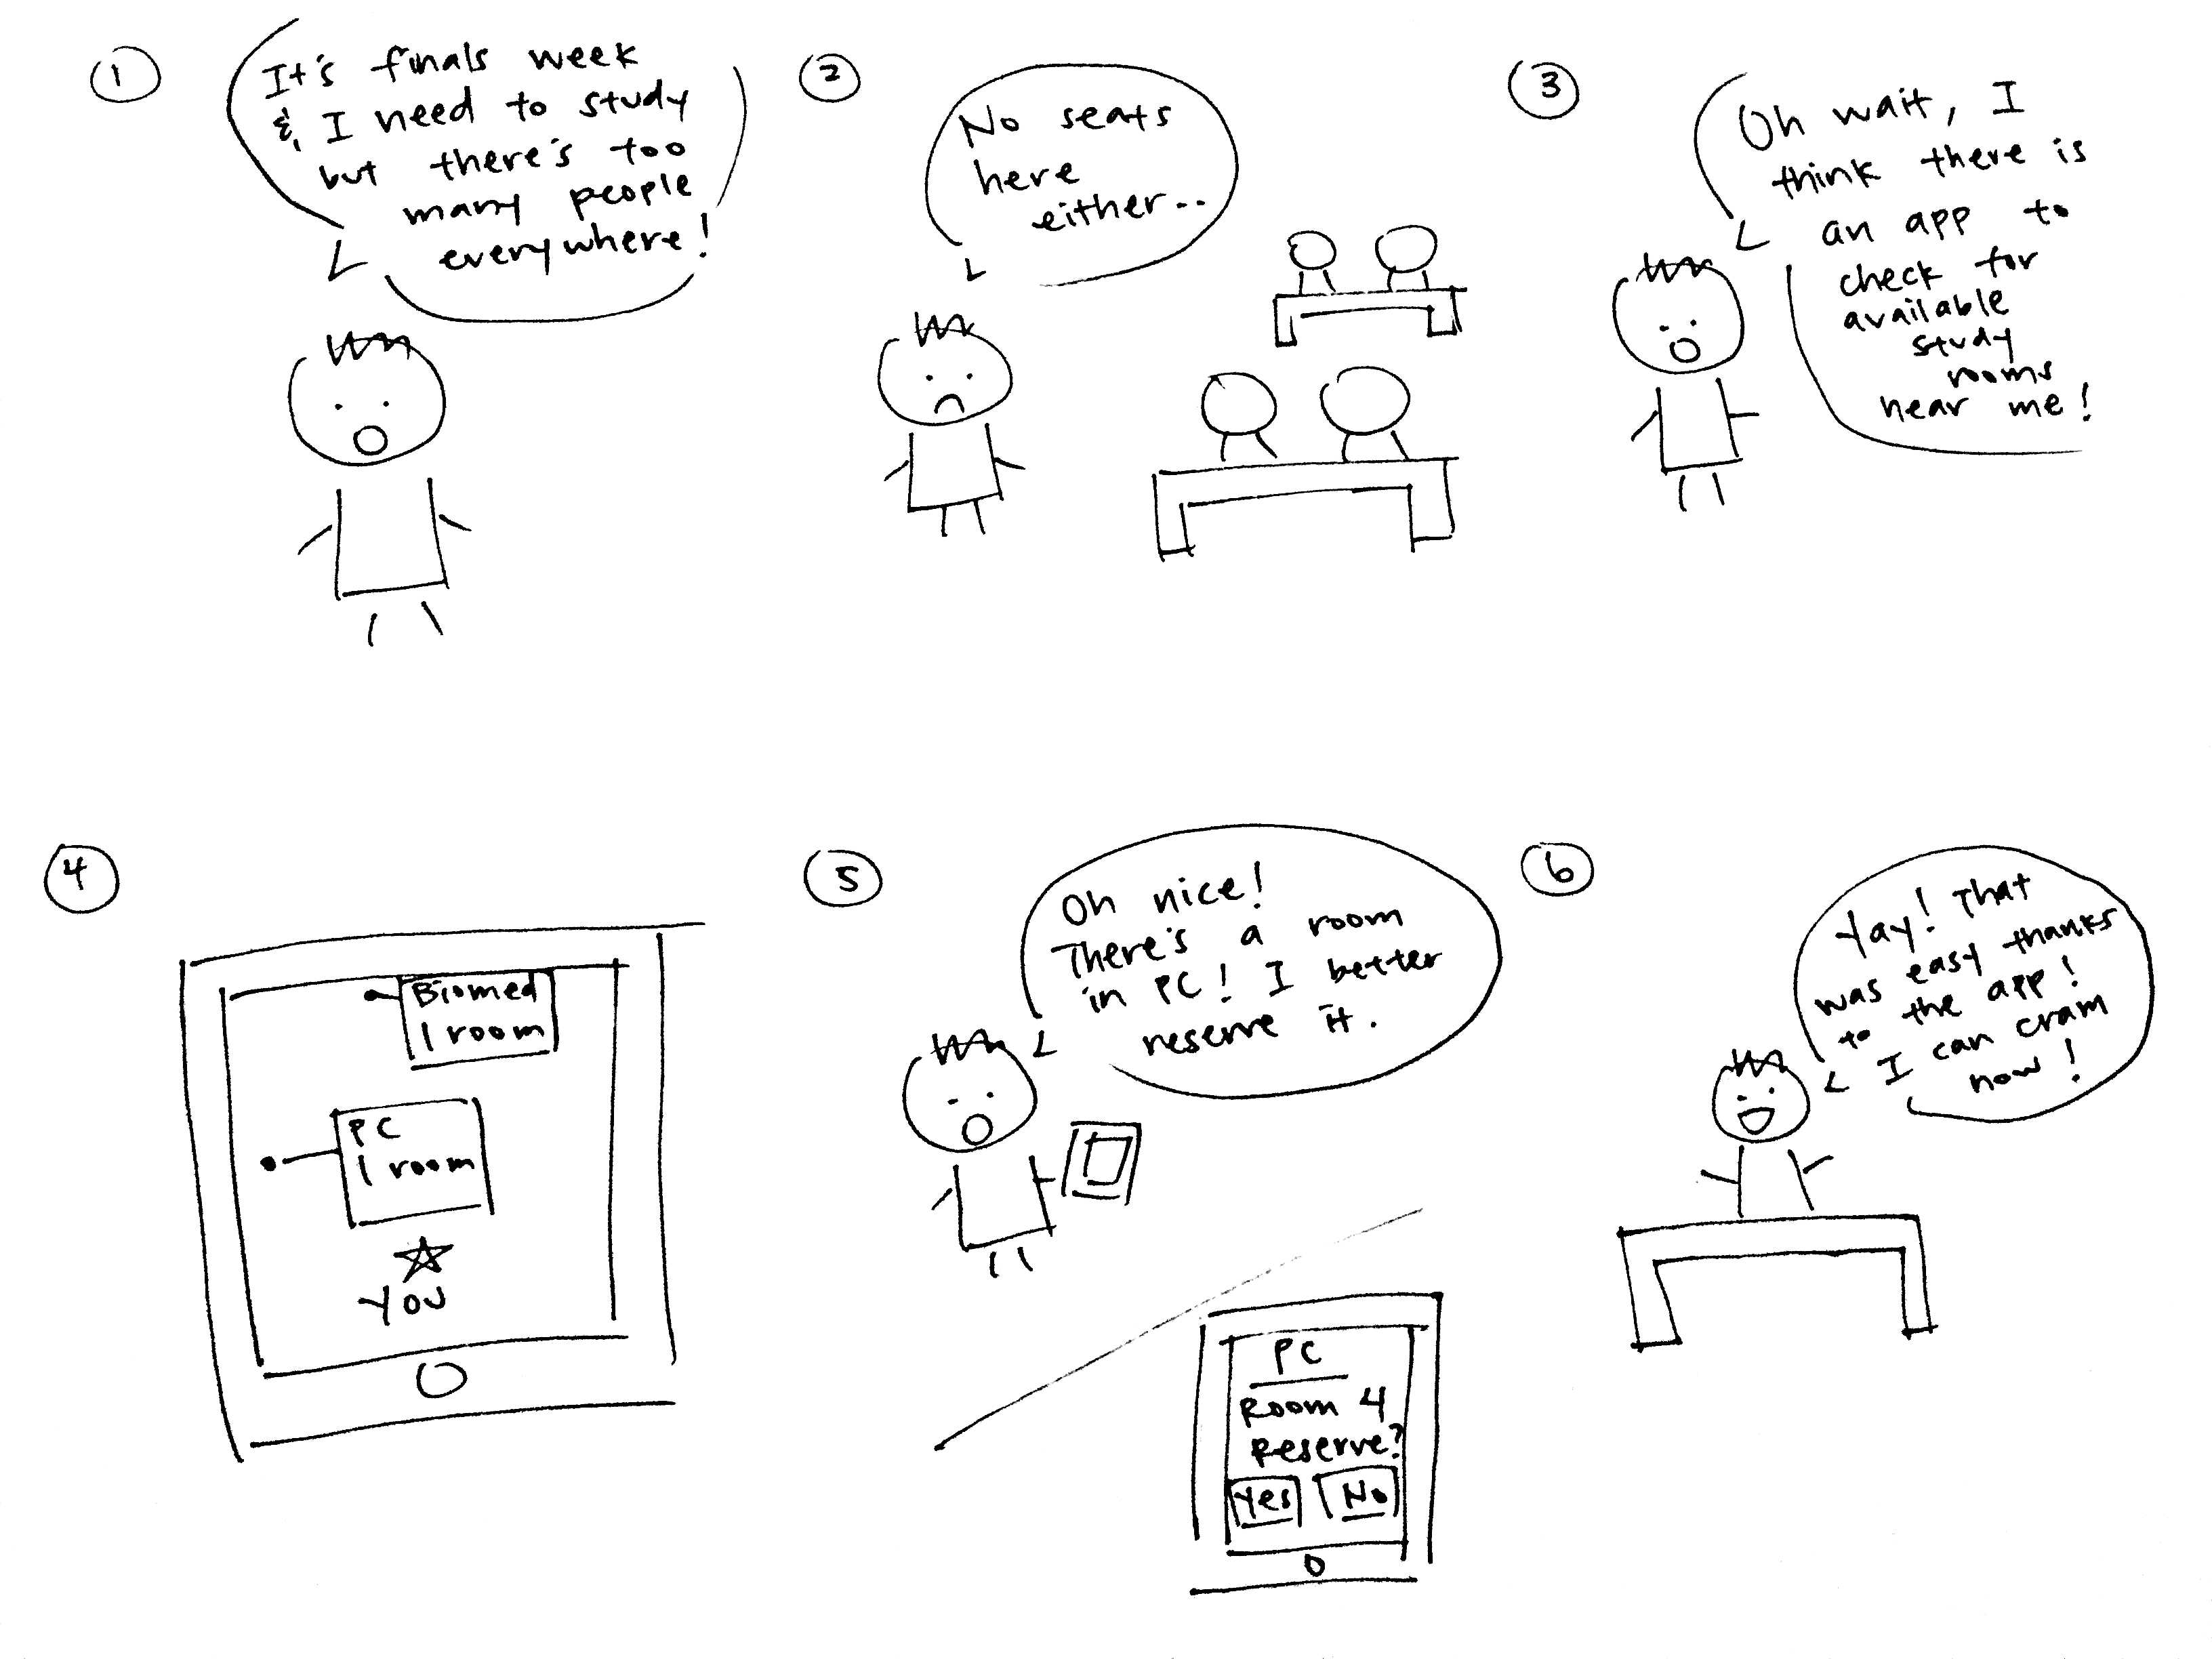 1
It's finals week
& I need to study
but there's too
many people
everywhere!
2
No seats
here
either..
3
Oh wait, I
think there is
an app to
check for
available
study
rooms
near me!
4
Biomed
1 room
PC
1 room
You
5
Oh nice!
There's a room
in PC! I better
reserve it.
PC
Room 4
Reserve?
Yes No
6
Yay! That
was easy thanks
to the app!
I can cram
now!